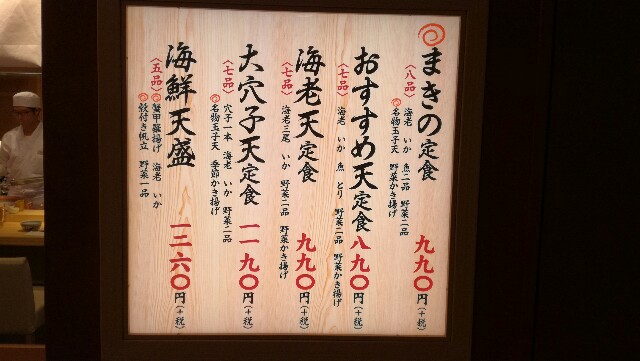 まきの定食 九九〇円(+税)
〈八品〉 海老 いか 魚二品 野菜二品
名物玉子天 野菜かき揚げ
おすすめ天定食 八九〇円(+税)
〈七品〉 海老 いか 魚 とり 野菜二品 野菜かき揚げ
海老天定食 九九〇円(+税)
〈七品〉 海老三尾 いか 野菜二品 野菜かき揚げ
大穴子天定食 一一九〇円(+税)
〈七品〉 穴子一本 海老 いか 野菜二品
名物玉子天 季節かき揚げ
海鮮天盛 一三六〇円(+税)
〈五品〉 蟹甲羅揚げ 海老 いか
殻付き帆立 野菜一品